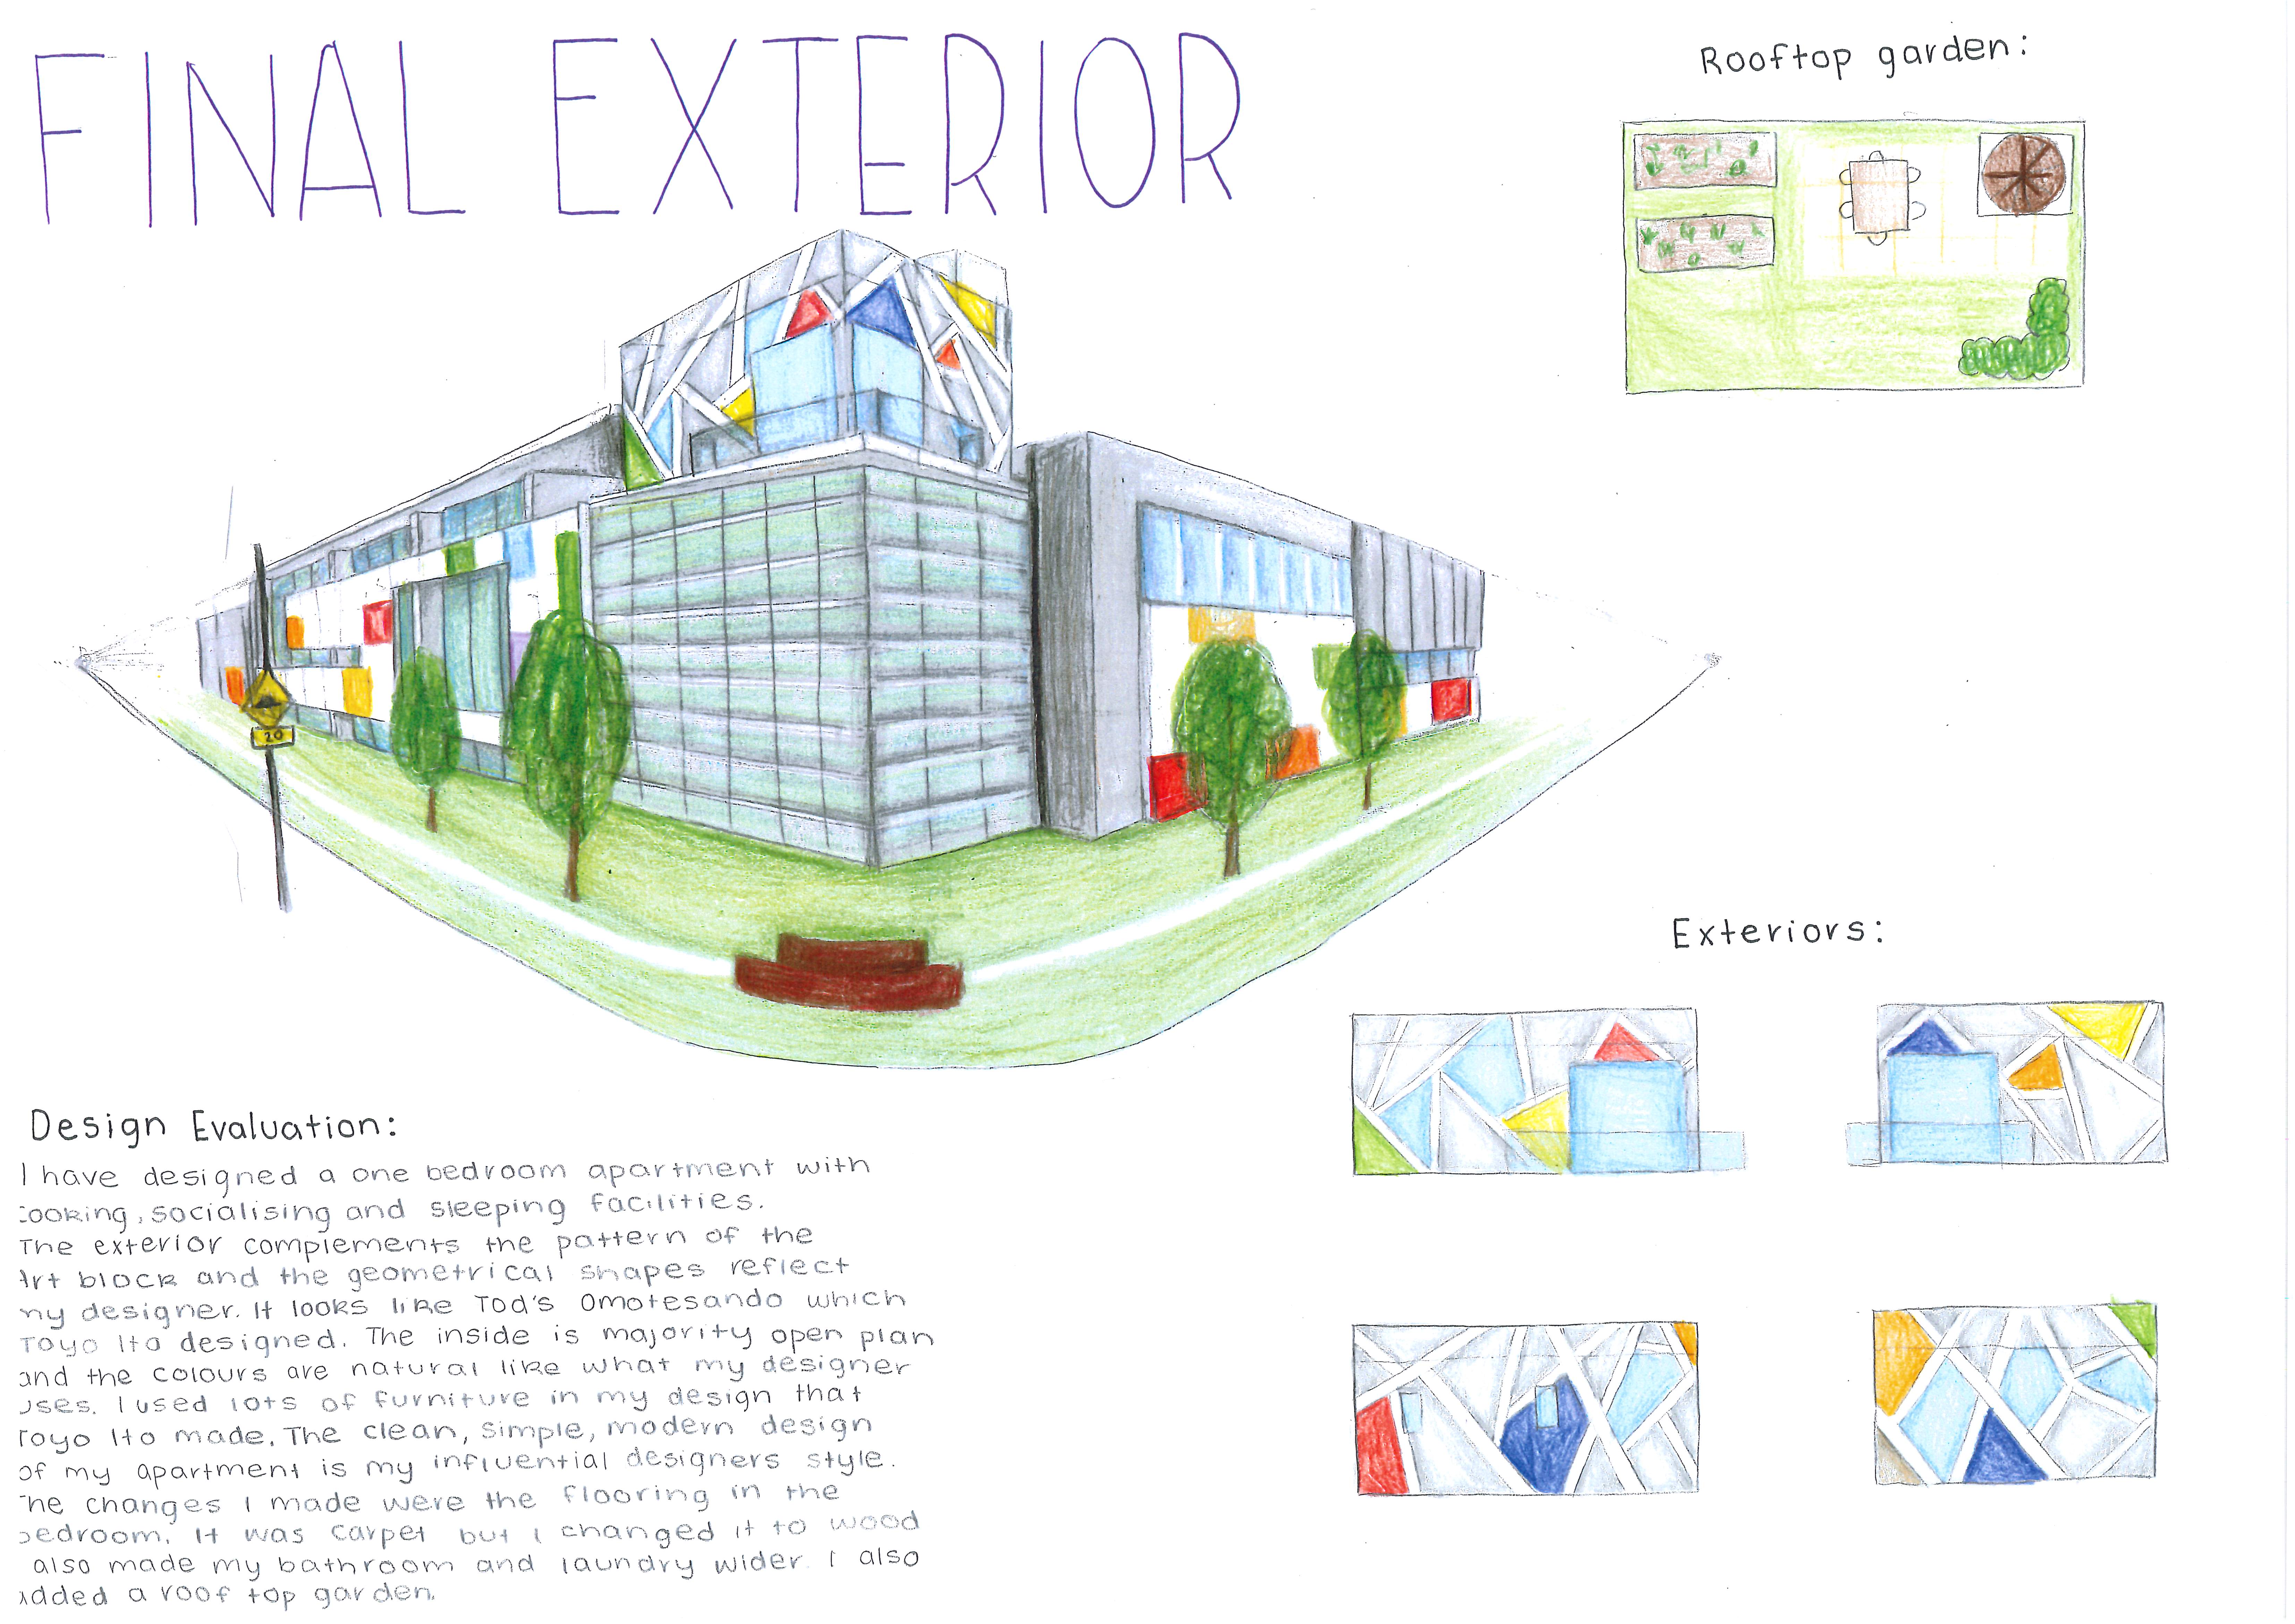 FINAL EXTERIOR
Rooftop garden:
20
Exteriors:
Design Evaluation:
I have designed a one bedroom apartment with
cooking, socialising and sleeping facilities.
The exterior complements the pattern of the
Art block and the geometrical shapes reflect
my designer. It looks like Tod's Omotesando which
Toyo Ito designed. The inside is majority open plan
and the colours are natural like what my designer
uses. I used lots of furniture in my design that
Toyo Ito made. The clean, simple, modern design
of my apartment is my influential designers style.
The changes I made were the flooring in the
bedroom. It was carpet but I changed it to wood
also made my bathroom and laundry wider. I also
added a roof top garden.